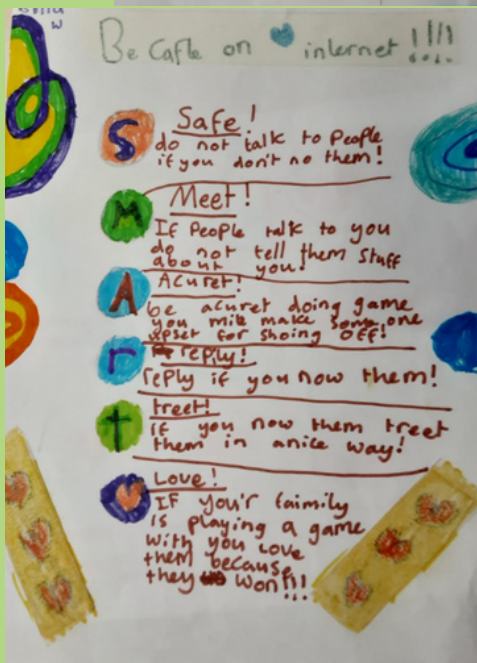 W
Be Cafle on internet !!!!
S
Safe!
do not talk to People
if you don't no them!
M
Meet!
If People talk to you
do not tell them stuff
about you!
A
Acuret!
be acuret doing game
you mite make some one
upset for shoing off!
r
reply!
reply if you now them!
t
treet!
if you now them treet
them in a nice way!
Love!
IF you'r faimily
is playing a game
with you Love
them because
they won!!!